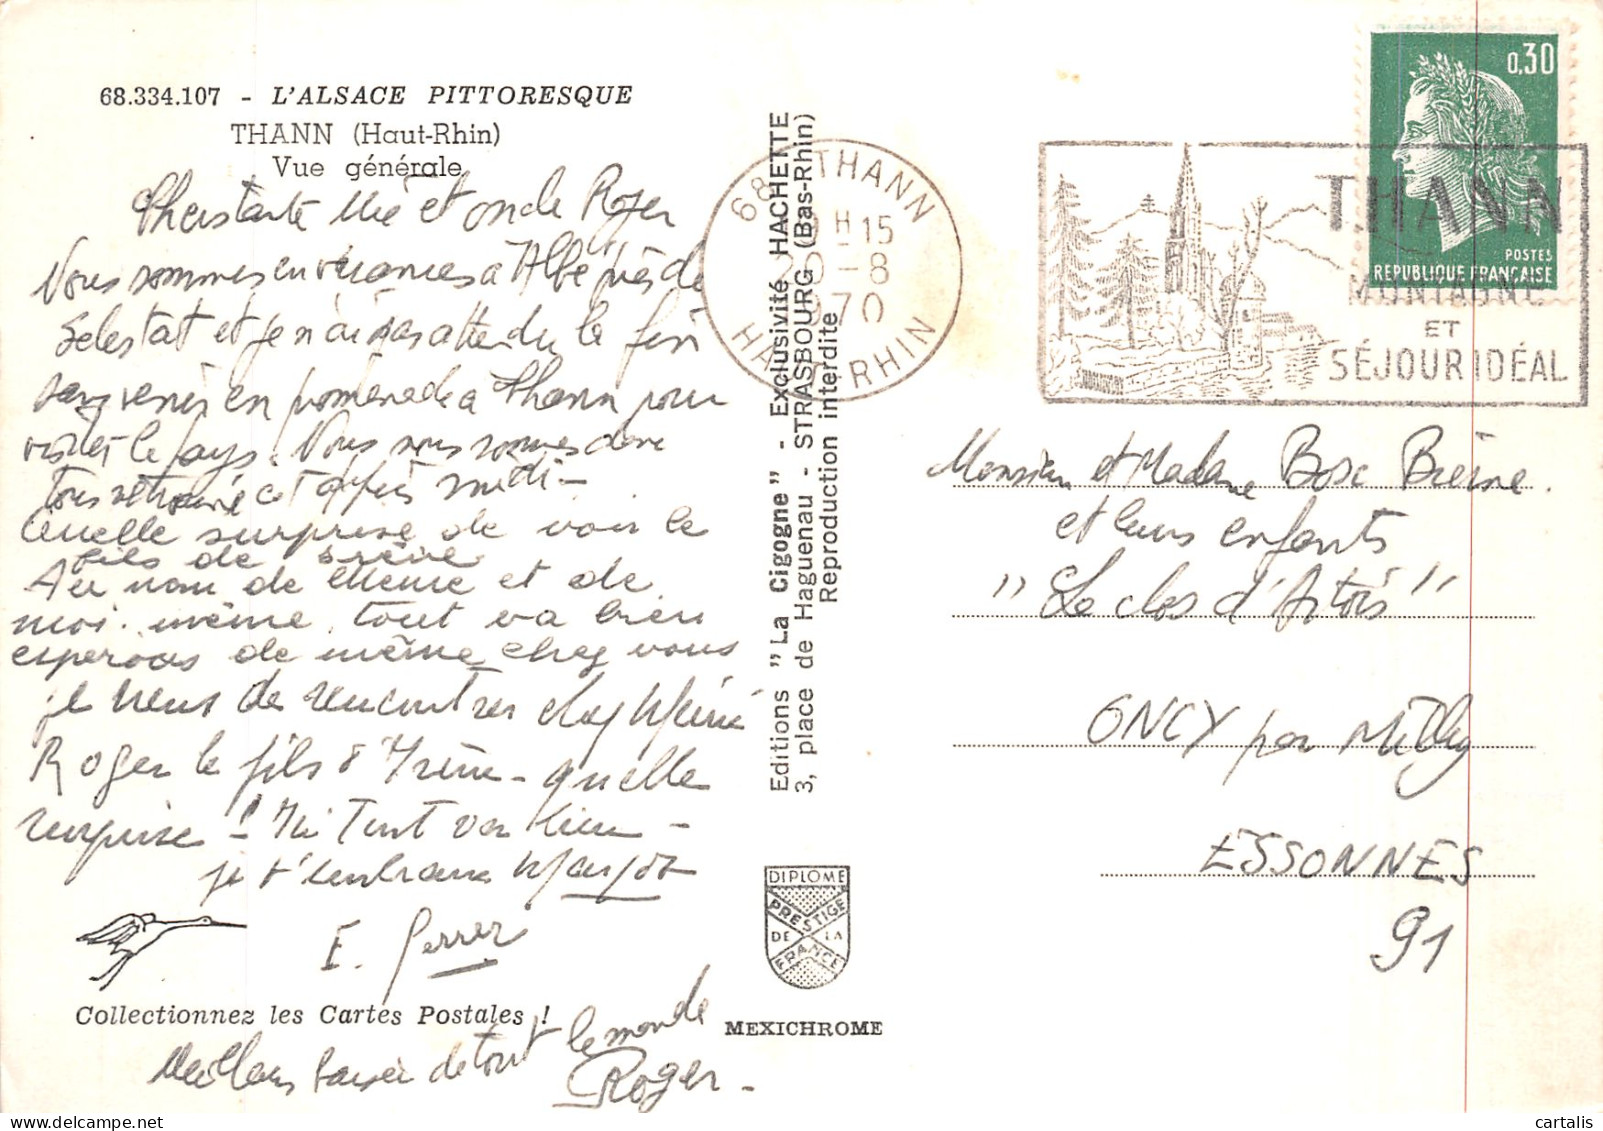 68.334.107 - L'ALSACE PITTORESQUE
THANN (Haut-Rhin)
Vue générale
et oncle Roger
Nous sommes en vacances à Albé près de
Selestat et je n'ai pas attendu la fin
venir en promenade a Thann pour
visiter le pays. Nous nous sommes donc
tous retrouvé cet après midi -
Quelle surprise de voir le
fils de
Au nom de et de
moi. même, tout va bien
esperons de même chez vous
je viens de rencontrer chez
Roger le fils d'Irène - quelle
surprise ! Ici tout va bien -
je t'embrasse Margot
E. Perrez
Collectionnez les Cartes Postales !
Meilleurs baisers de tout le monde
Roger -
Editions "La Cigogne" - Exclusivité HACHETTE
3, place de Haguenau - STRASBOURG (Bas-Rhin)
Reproduction interdite
DIPLOME
PRESTIGE
DE LA
FRANCE
MEXICHROME
68 THANN
H 15
20 - 8
1970
HAUT-RHIN
0,30
POSTES
REPUBLIQUE FRANÇAISE
THANN
MONTAGNE
ET
SÉJOUR IDÉAL
Monsieur et Madame Bosc
et leurs enfants
"Le clos d'Artois"
ONCY par Milly
ESSONNES
91
cartalis